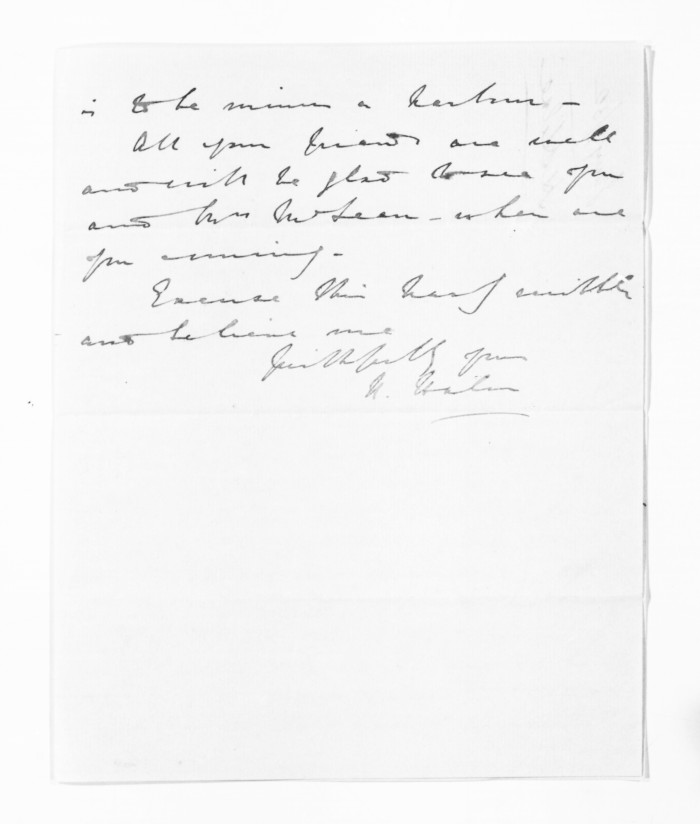 is to be minus a harbour -
All your friends are well
and will be glad to see you
and Mrs McLean - when are
you coming -
Excuse this hasty scribble
and believe me
faithfully yours